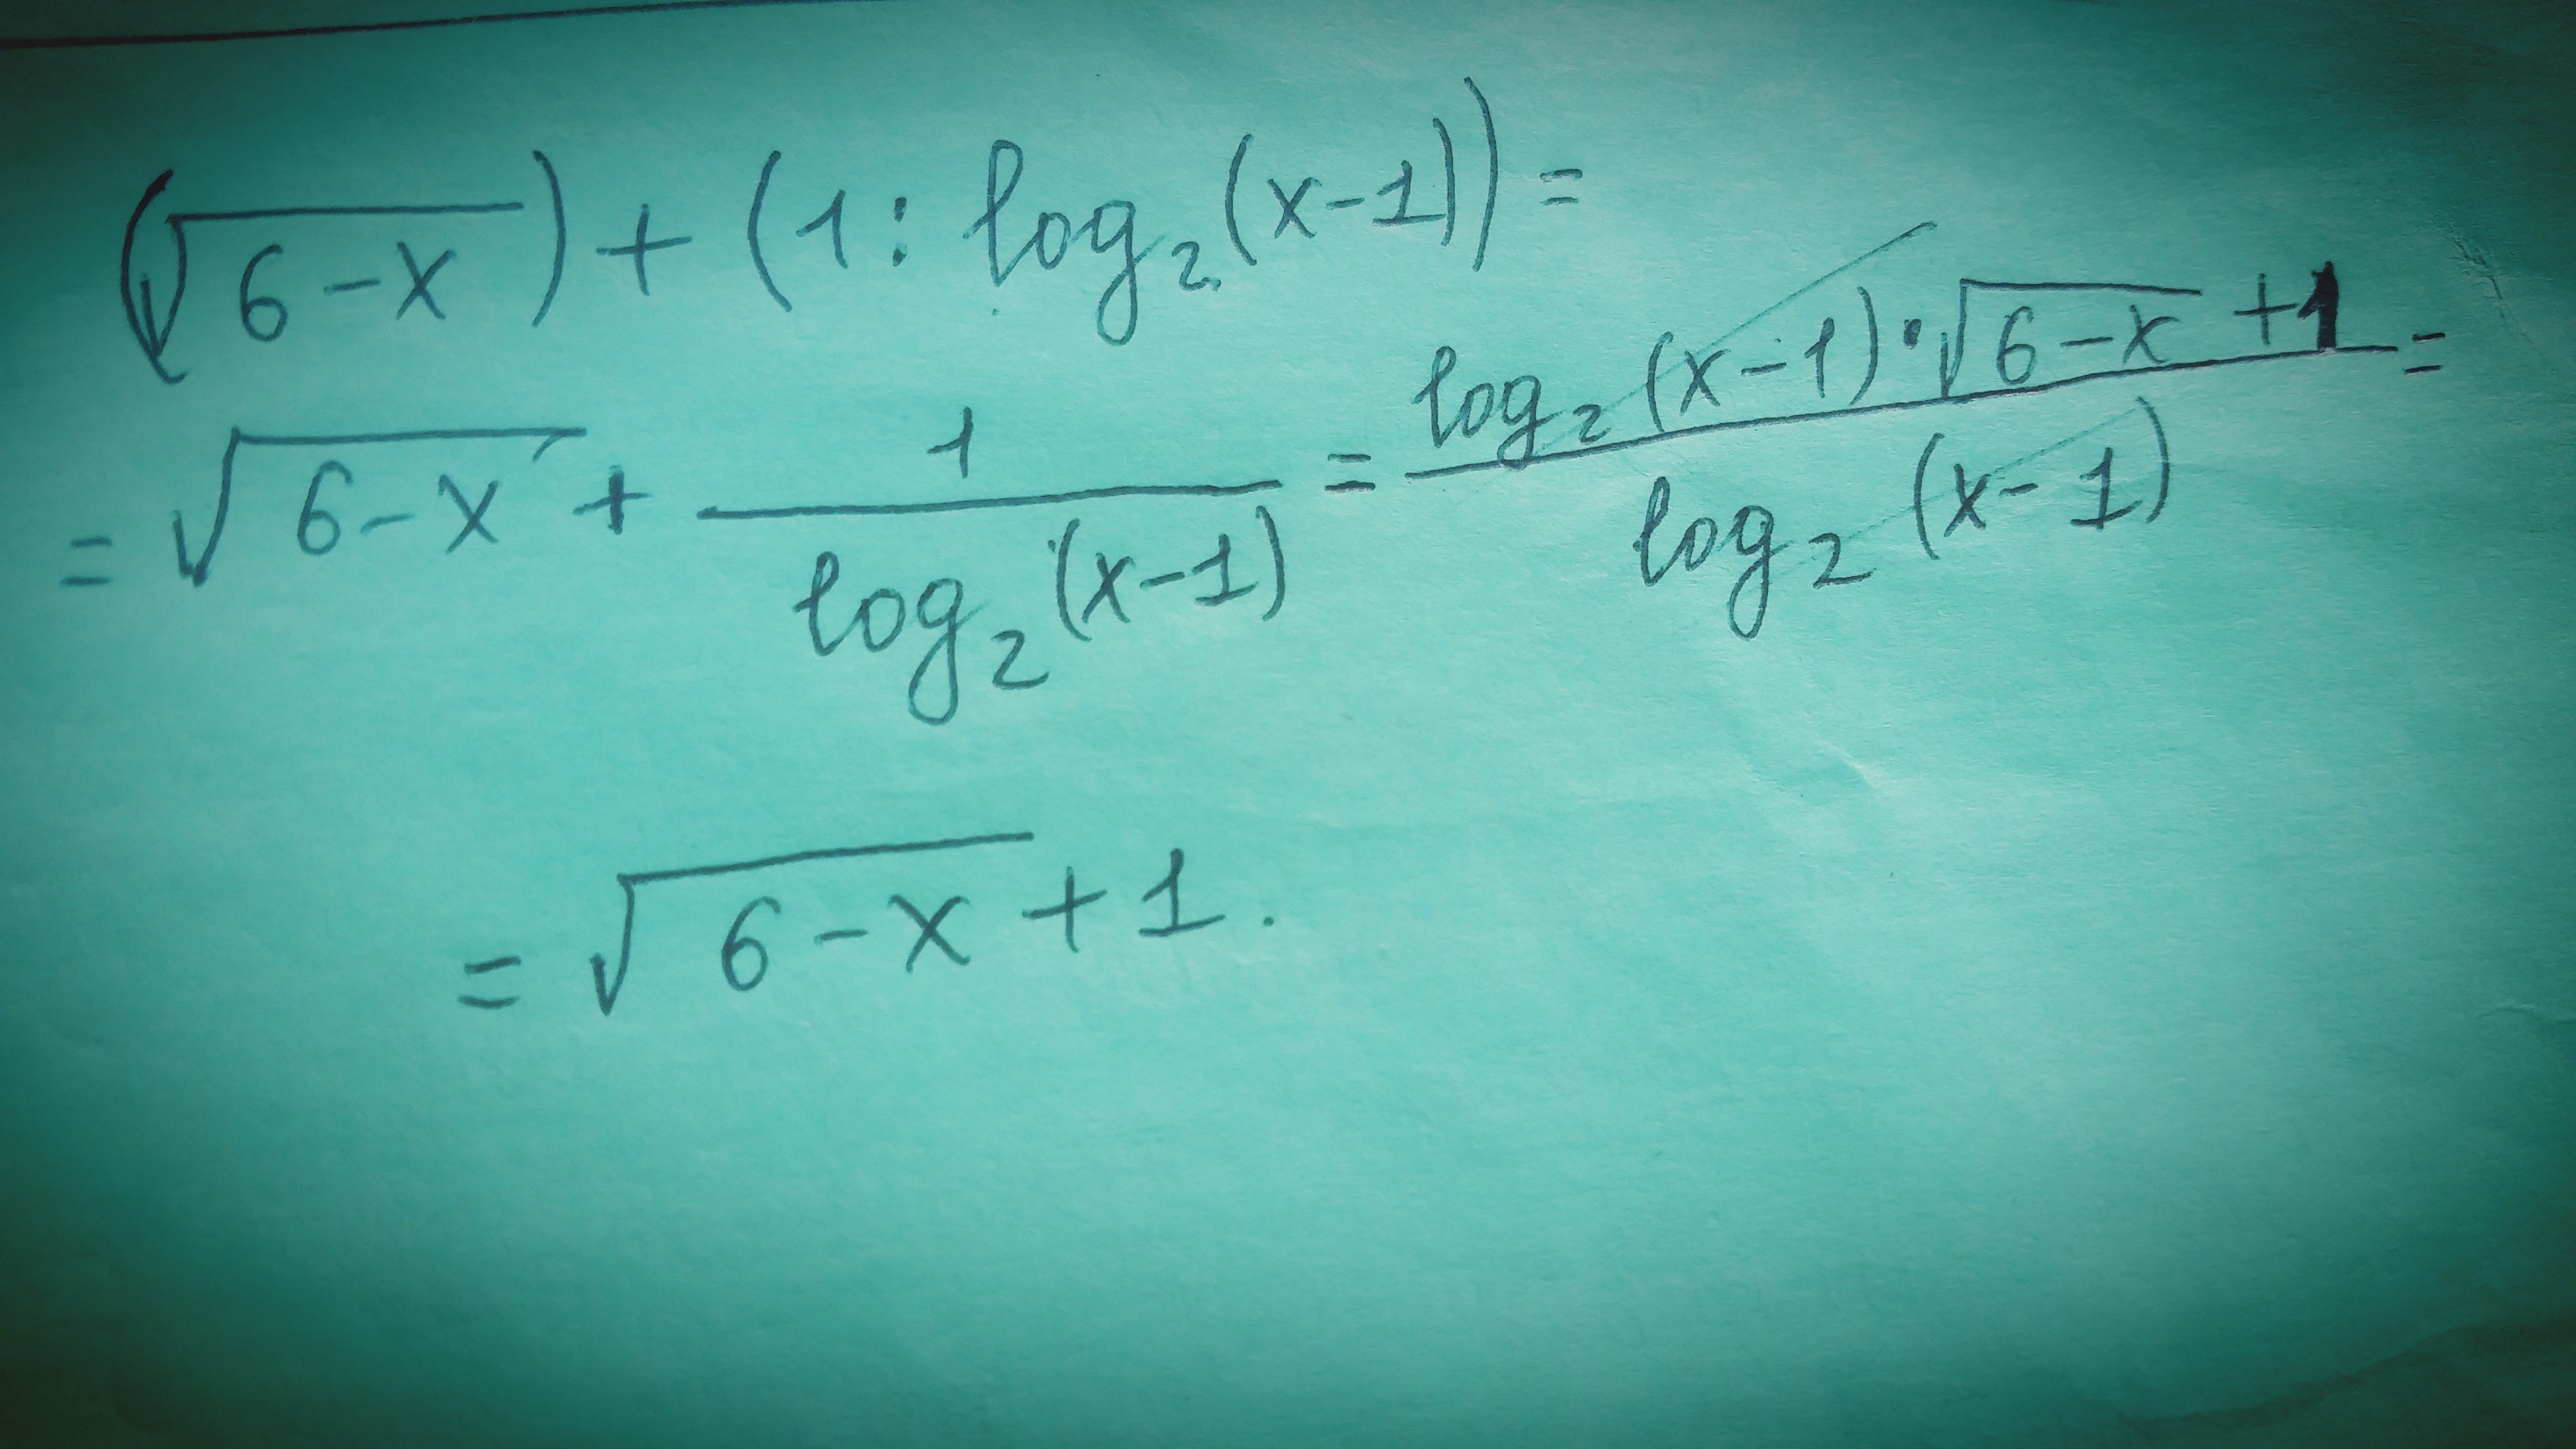 (√6-x) + (1 : log₂(x-1)) =
= √6-x + 1/log₂(x-1) = (log₂(x-1)·√6-x +1)/log₂(x-1) =
= √6-x + 1.